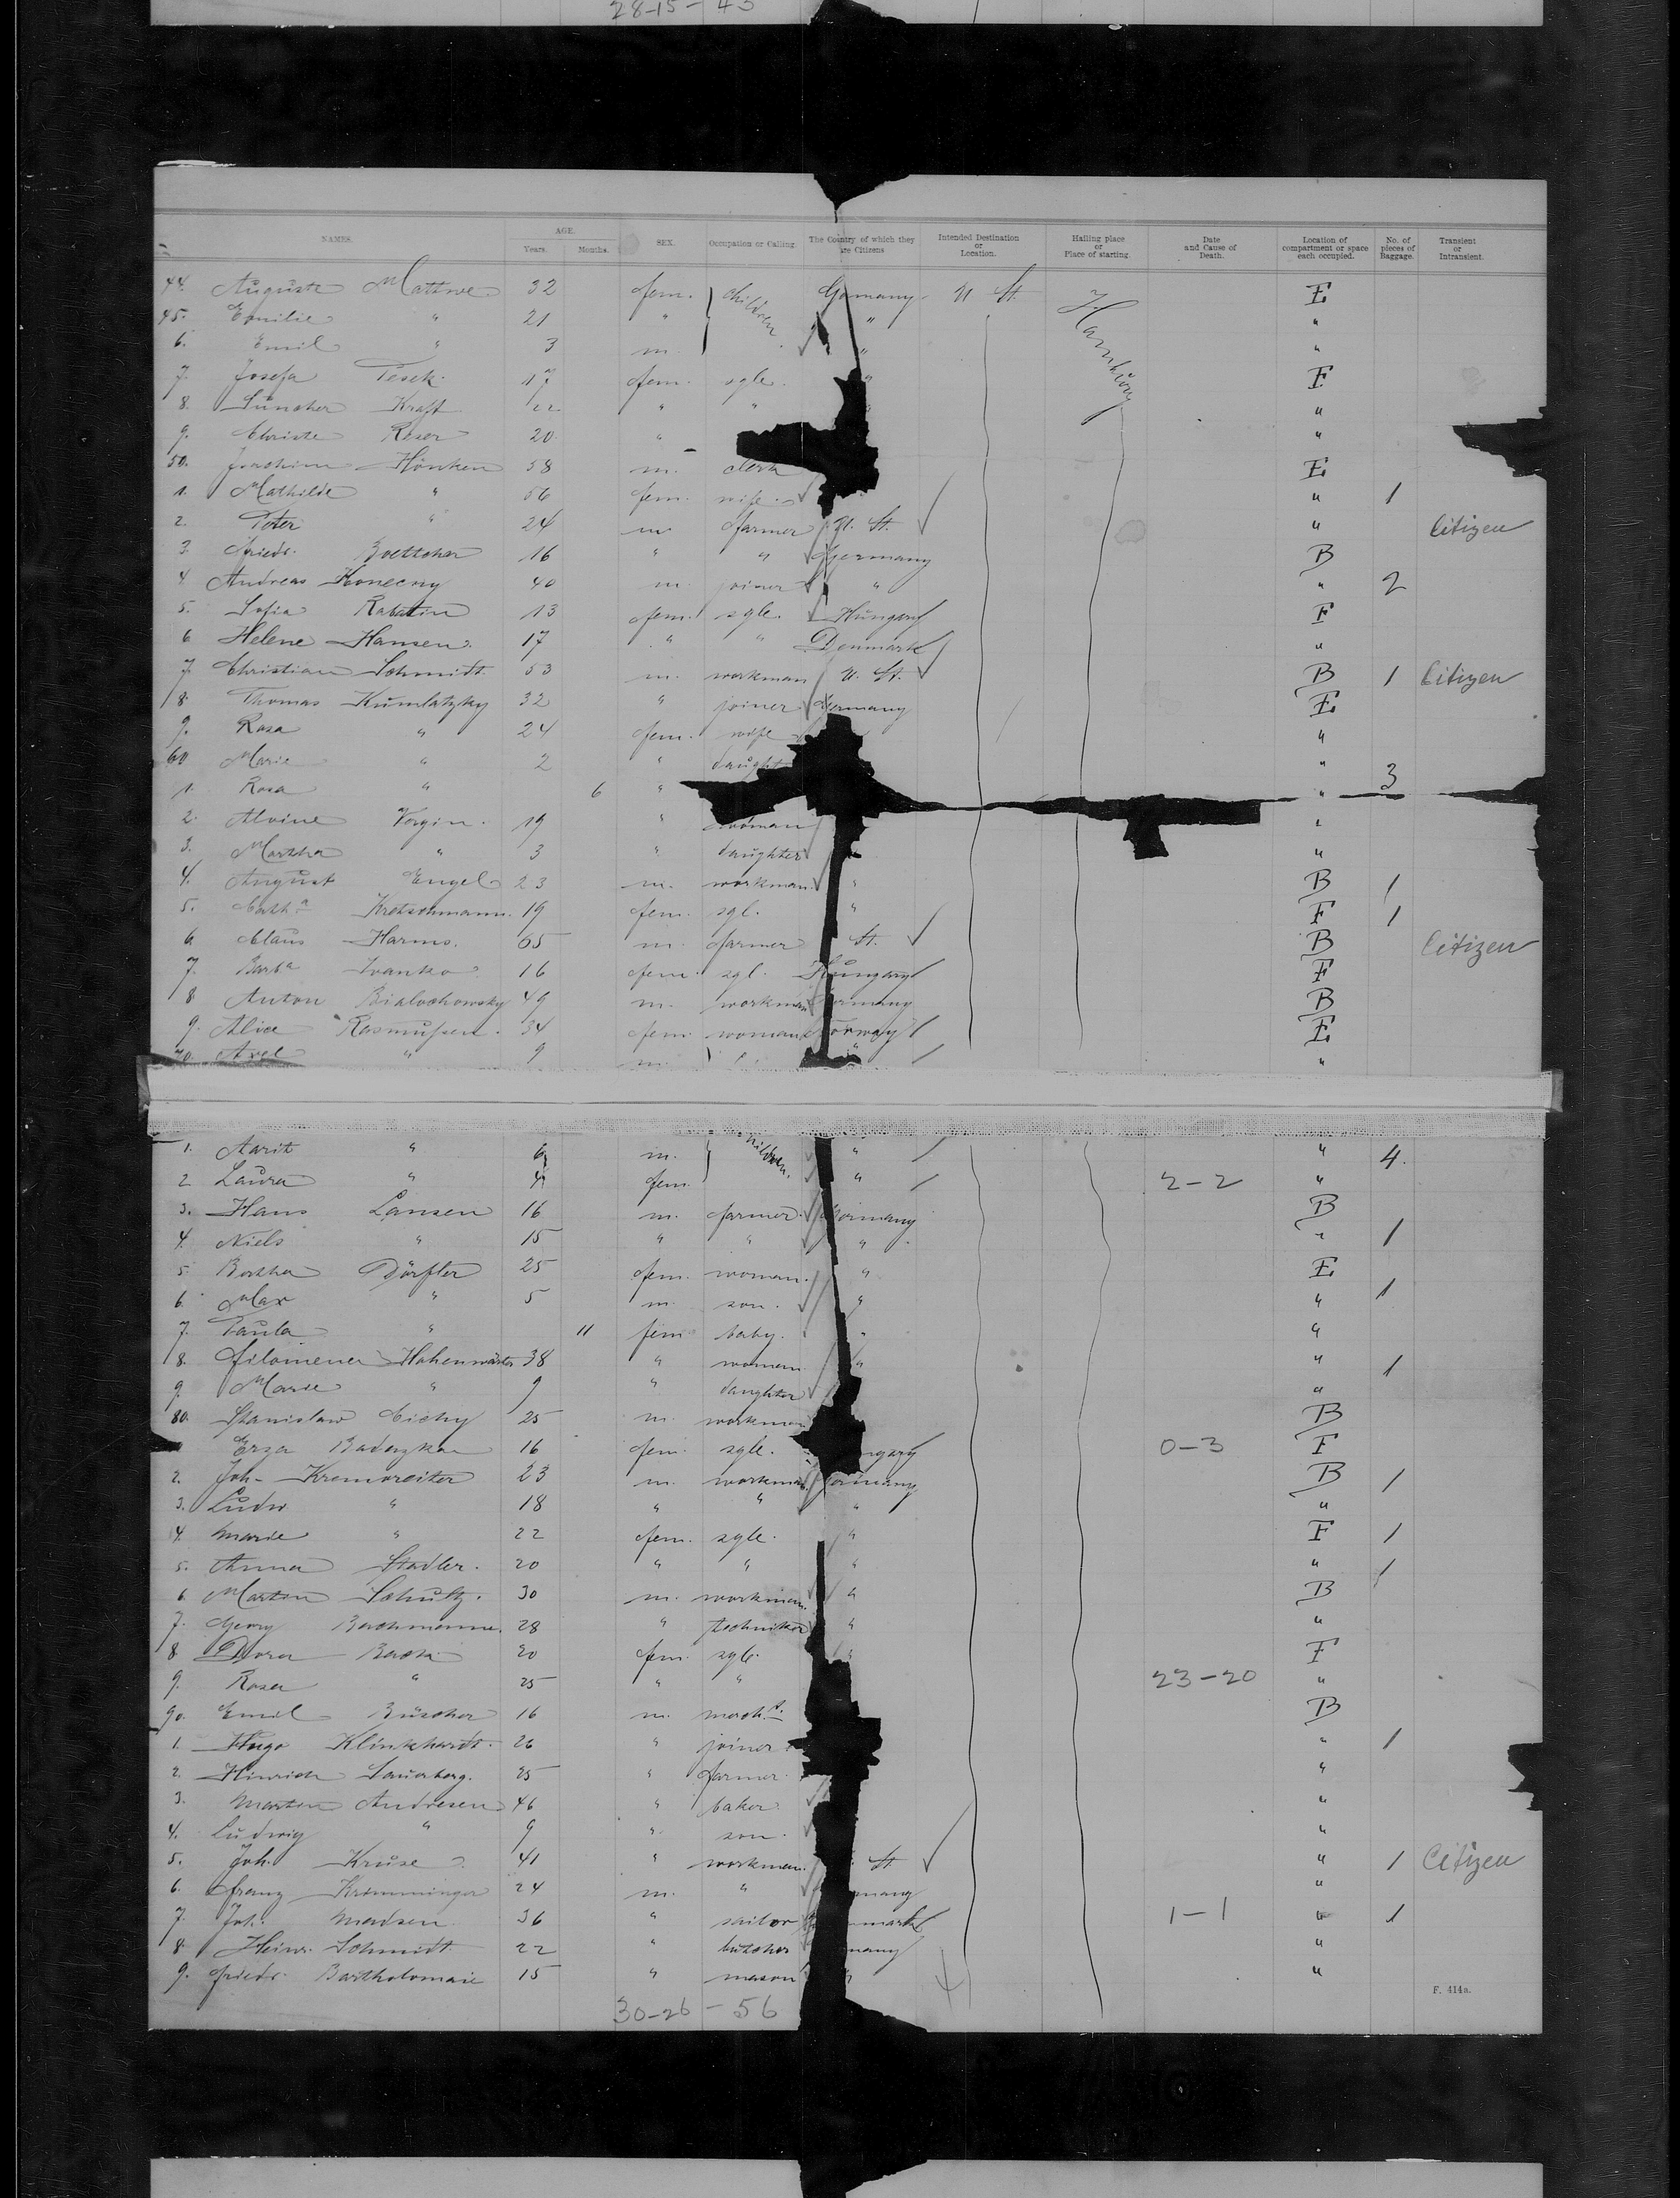 28-15-43
NAMES. AGE. Years. Months. SEX. Occupation or Calling. The Country of which they are Citizens Intended Destination or Location. Hailing place or Place of starting. Date and Cause of Death. Location of compartment or space each occupied. No. of pieces of Baggage. Transient or Intransient.
44. Auguste Mattwe 32 fem. children Germany U St. Hamburg E
45. Emilie " 21 " " "
6. Emil " 3 m. " "
7. Josefa Pesek 17 fem. sgle. " F
8. Kraft 22 " " "
9. Christe Roser 20 " "
50. Joachim Hönken 58 m. clerk E
1. Mathilde " 56 fem. wife " 1
2. Peter " 24 m farmer U. St. " Citizen
3. Friedr. Boettcher 16 " " Germany B
4. Andreas Konecny 40 m. joiner " " 2
5. Sofia Rabatin 13 fem. sgle. Hungary F
6. Helene Hansen 17 " " Denmark "
7. Christian Schmidt 53 m. workman U. St. B 1 Citizen
8. Thomas Kumlatzky 32 " joiner Germany E
9. Rosa " 24 fem. wife "
60 Marie " 2 " daught "
1. Rosa " 6 " " 3
2. Alvine Voigin 19 " woman "
3. Martha " 3 " daughter "
4. August Engel 23 m. workman " B 1
5. Cath.a Kretschmann 19 fem. sgl. " F 1
6. Claus Harms. 65 m. farmer St. B Citizen
7. Barb.a Ivanko 16 fem. sgl. Hungary F
8. Anton Bialochowsky 49 m. workman ermany B
9. Alice Rasmussen 34 fem. woman Norway E
70. Axel " 9 m. " "
1. Aarit " 6 m. children. " " 4.
2. Laura " 4 fem. " 2-2 "
3. Hans Lansen 16 m. farmer Germany B
4. Niels " 15 " " " " 1
5. Bertha Dörfler 25 fem. woman. " E
6. Max " 5 m. son. " " 1
7. Paula " 11 fem baby. " "
8. Filomena Hohenwarter 38 " woman " " 1
9. Marie " 9 " daughter "
80. Stanislaw Cichy 25 m. workman B
Erza 16 fem. sgle. ngary 0-3 F
2. Joh. Kremsreiter 23 m. workman Germany B 1
3. Ludw " 18 " " " "
4. Marie " 22 fem. sgle. " F 1
5. Anna Stadler. 20 " " " " 1
6. Marton Schultz. 30 m. workman " B
7. Georg Bachmann. 28 " techniker " "
8. Dora 20 fem. sgle. " F
9. Rosa " 25 " " 23-20 "
90. Emil Büscher 16 m. merch.t. B
1. Hugo Klinkhardt. 26 " joiner " 1
2. Hinrich Sauerberg. 25 " farmer "
3. Marten Andresen 46 " baker "
4. Ludwig " 9 " son. "
5. Joh. Kruse 41 " workman. St. " 1 Citizen
6. Franz Kromminger 24 m. " many "
7. Joh. Madsen 36 " sailor mark 1-1 " 1
8. Heinr. Schmidt 22 " butcher many "
9. Friedr. Bartholomaie 15 " mason " "
F. 414a.
30-26-56